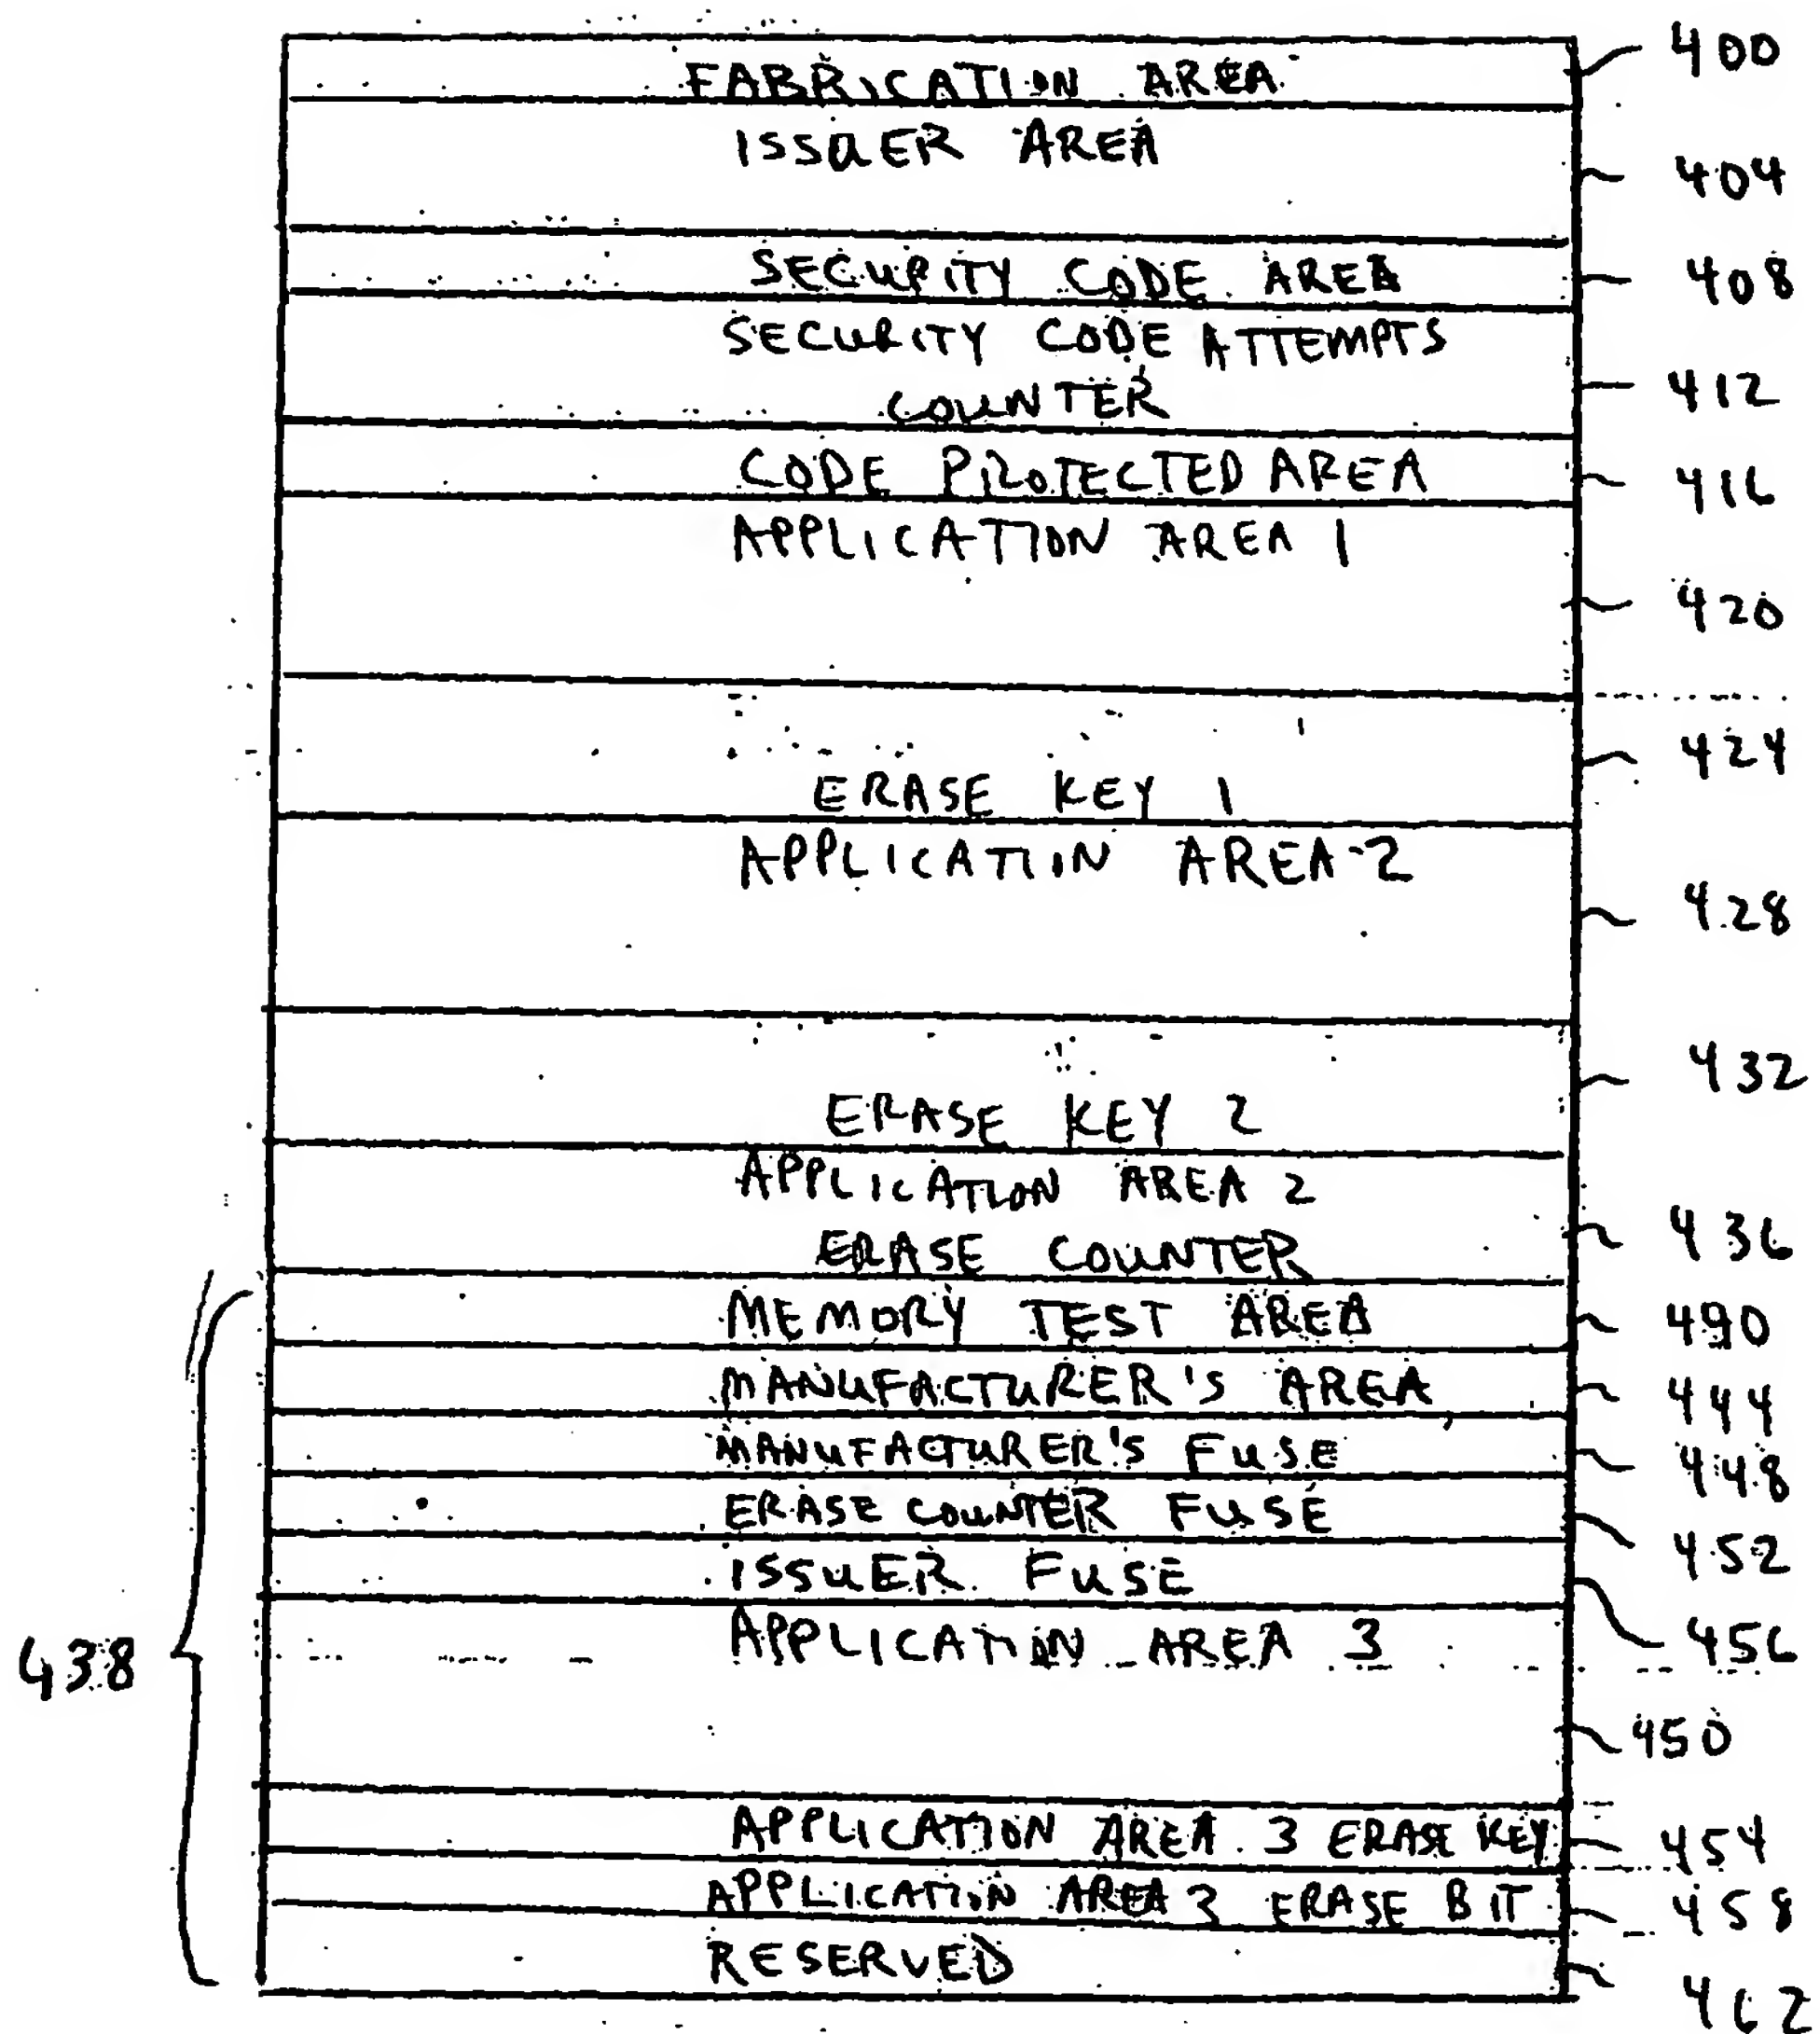 FABRICATION AREA 400
ISSUER AREA
404
SECURITY CODE AREA 408
SECURITY CODE ATTEMPTS
COUNTER 412
CODE PROTECTED AREA 416
APPLICATION AREA 1
420
424
ERASE KEY 1
APPLICATION AREA 2
428
432
ERASE KEY 2
APPLICATION AREA 2
ERASE COUNTER 436
MEMORY TEST AREA 440
MANUFACTURER'S AREA 444
MANUFACTURER'S FUSE 448
ERASE COUNTER FUSE 452
ISSUER FUSE
APPLICATION AREA 3 456
438
450
APPLICATION AREA 3 ERASE KEY 454
APPLICATION AREA 3 ERASE BIT 458
RESERVED 462